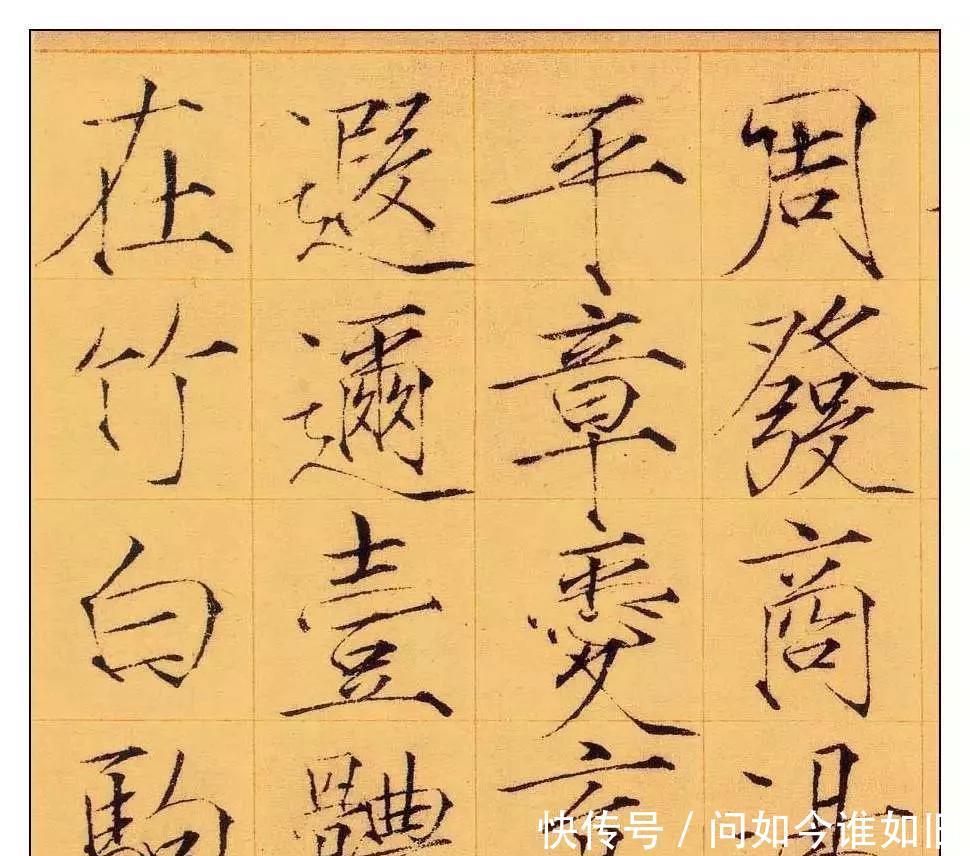 周發商
平章愛
遐邇壹體
在竹白駒
快传号 / 问如今谁如旧